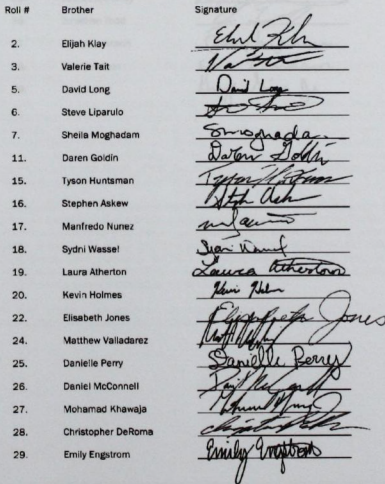 Roll # Brother Signature
2. Elijah Klay
3. Valerie Tait
5. David Long David Long
6. Steve Liparulo
7. Sheila Moghadam Smoghada
11. Daren Goldin Daren Goldin
15. Tyson Huntsman Tyson
16. Stephen Askew
17. Manfredo Nunez
18. Sydni Wassel
19. Laura Atherton Laura Atherton
20. Kevin Holmes
22. Elisabeth Jones Elizabeth Jones
24. Matthew Valladarez
25. Danielle Perry Danielle Perry
26. Daniel McConnell
27. Mohamad Khawaja
28. Christopher DeRoma
29. Emily Engstrom Emily Engstrom